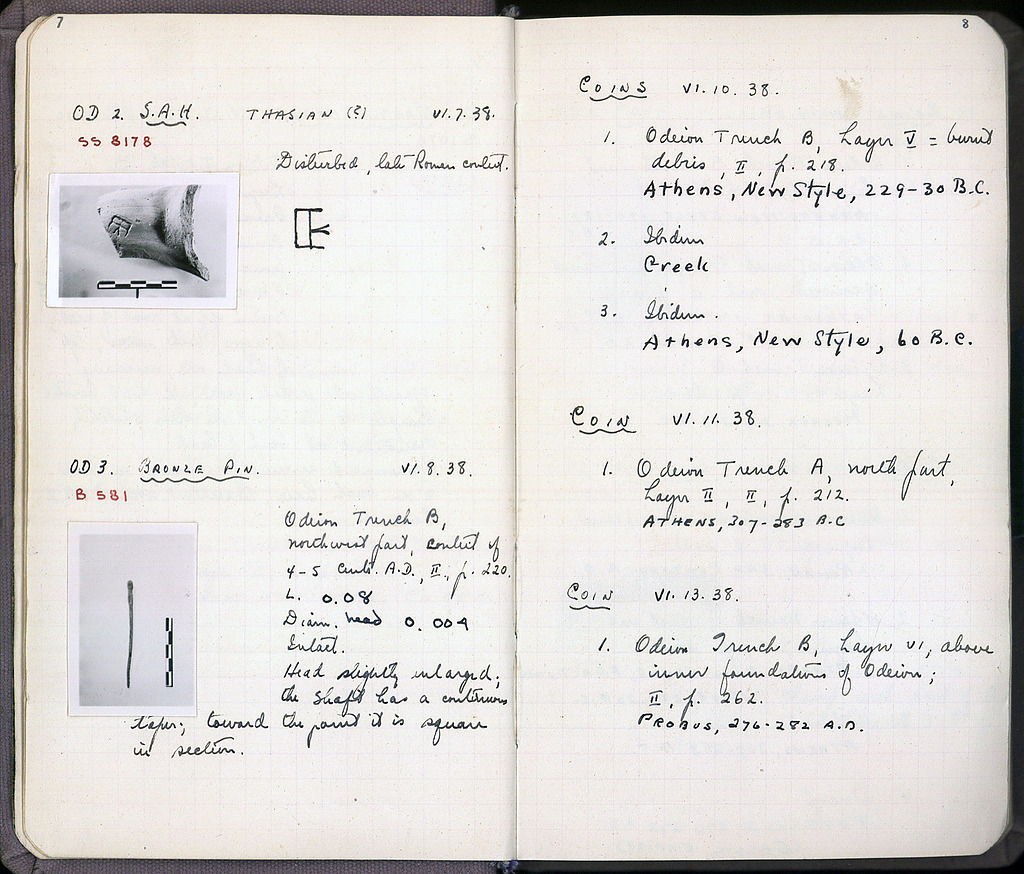 7
OD 2. S.A.H. THASIAN (?) VI.7.38.
SS 8178
Disturbed, late Roman context.
OD 3. BRONZE PIN. VI.8.38.
B 581
Odeion Trench B,
northwest part, context of
4-5 Cents. A.D., II, p. 220.
L. 0.08
Diam. head 0.004
Intact.
Head slightly enlarged;
the shaft has a continuous
taper; toward the point it is square
in section.
8
COINS VI.10.38.
1. Odeion Trench B, Layer V = burnt
debris, II, p. 218.
Athens, New Style, 229-30 B.C.
2. Ibidum
Greek
3. Ibidum.
Athens, New Style, 60 B.C.
COIN VI.11.38.
1. Odeion Trench A, north part,
Layer II, II, p. 212.
ATHENS, 307-283 B.C
COIN VI.13.38.
1. Odeion Trench B, Layer VI, above
inner foundations of Odeion;
II, p. 262.
PROBUS, 276-282 A.D.